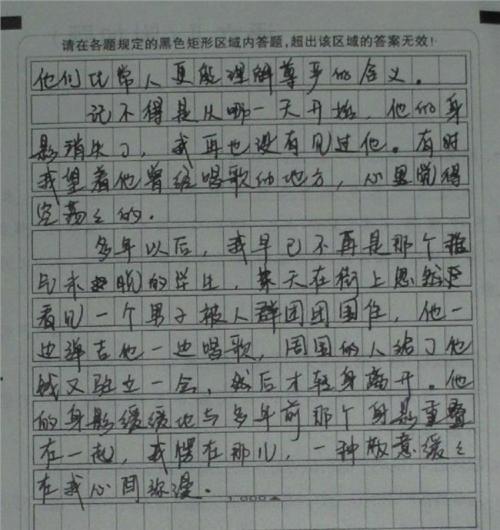 请在各题规定的黑色矩形区域内答题,超出该区域的答案无效!
他们比常人更能理解尊严的含义。
记不得是从哪一天开始,他的身
影消失了,我再也没有见过他。有时
我望着他曾经唱歌的地方,心里觉得
空荡々的。
多年以后,我早已不再是那个
的学生,某天在街上忽然
看见一个男子被人群团团围住,他一
边弹吉他一边唱歌,周围的人给了他
钱又驻立一会,然后才转身离开。他
的身影缓缓地与多年前那个身影重叠
在一起,我愣在那儿,一种敬意缓々
在我心间弥漫。